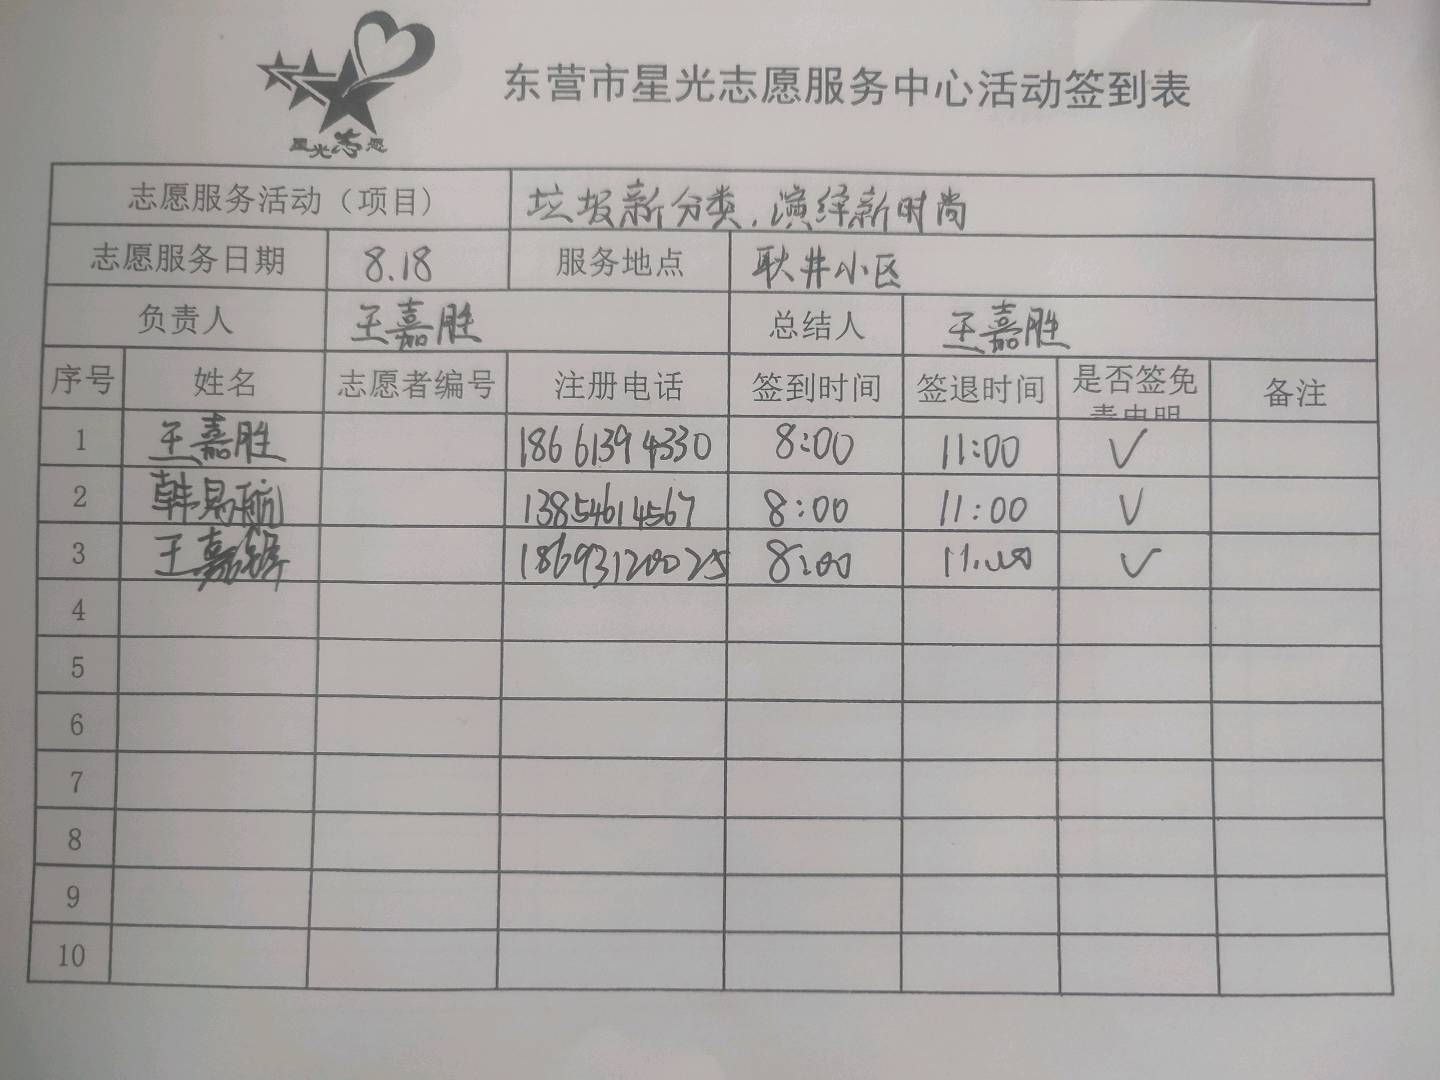 星光志愿
东营市星光志愿服务中心活动签到表
志愿服务活动（项目） 垃圾新分类，演绎新时尚
志愿服务日期 8.18 服务地点 耿井小区
负责人 王嘉胜 总结人 王嘉胜
序号 姓名 志愿者编号 注册电话 签到时间 签退时间 是否签免责申明 备注
1 王嘉胜 18661394330 8:00 11:00 ✓
2 韩易航 13854614567 8:00 11:00 ✓
3 王嘉 18693120025 8:00 11:00 ✓
4
5
6
7
8
9
10